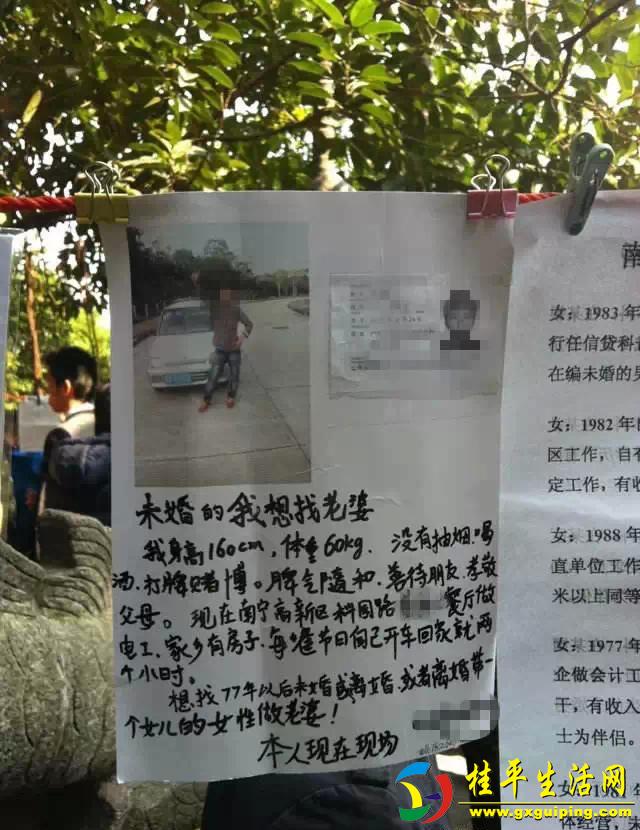 未婚的我想找老婆
我身高160cm,体重60kg. 没有抽烟.喝
酒.打牌赌博。脾气随和.善待朋友.孝敬
父母。现在南宁高新区科园路 餐厅做
电工、家乡有房子.每逢节日自己开车回家就两
个小时。
想找77年以后未婚或离婚.或者离婚带一
个女儿的女性做老婆!
本人现在现场
南
女:某 1983年
行任信贷科
在编未婚的男
女:1982年
区工作,自有
定工作,有收
女:1988
直单位工作
米以上同等
女:1977年
企做会计工
干,有收入
士为伴侣。
女:198
体经营,未
桂平生活网
www.gxguiping.com